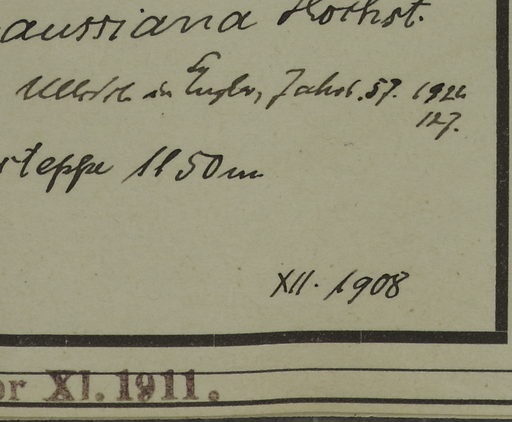 aussiana Hochst.
Ulbrich in Engler, Jahrb. 57. 192
127.
steppe 1150m
XII. 1908
or XI. 1911.